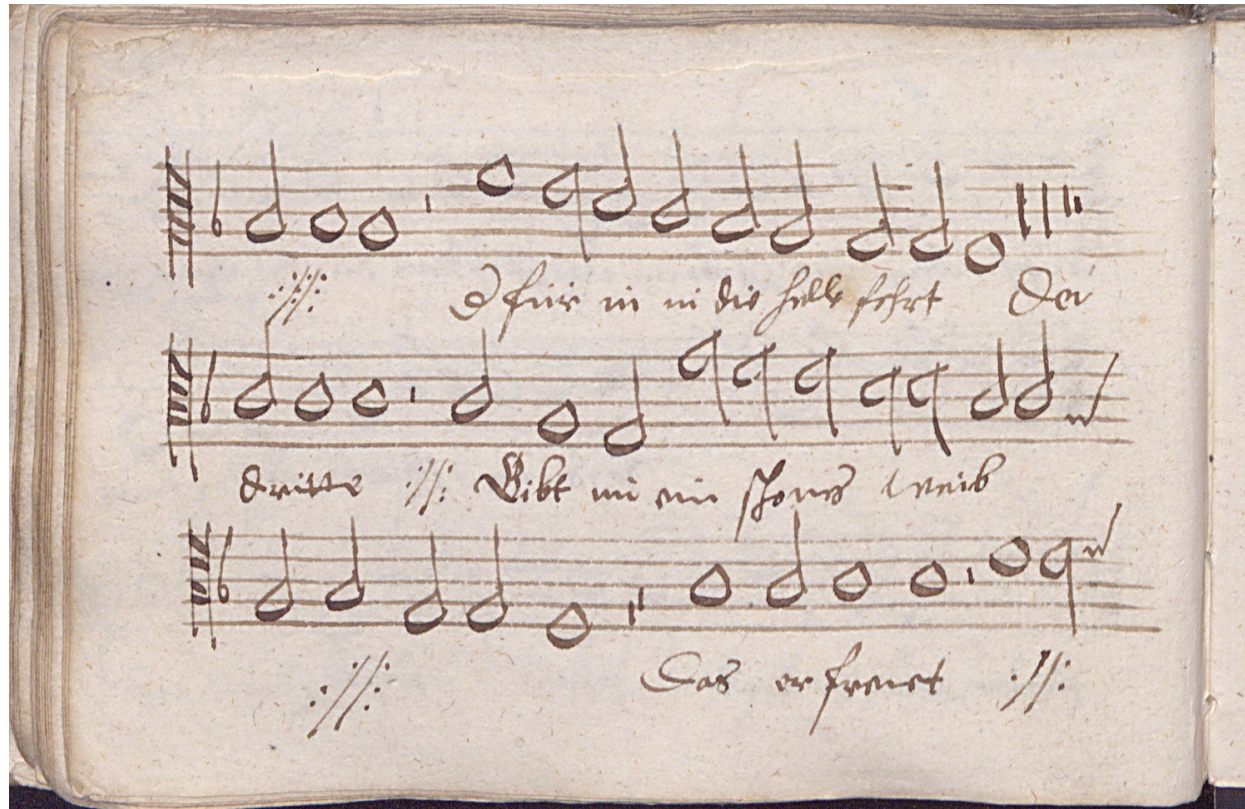 :// : Er für in in die helle fehrt Der
dritte :// : Gibt im ein schones weib
:// : Das erfreuet :// :